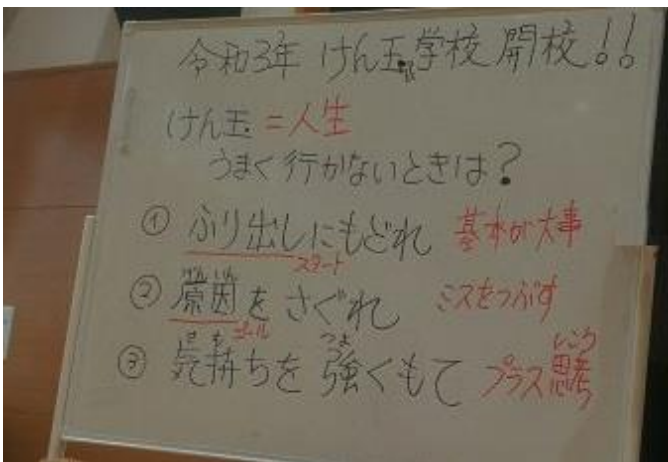 令和3年 けん玉学校 開校!!
けん玉=人生
うまく行かないときは?
① ふり出しにもどれ 基本が大事
スタート
② 原因をさぐれ ミスをつぶす
ゴール
③ 気持ちを強くもて プラス思考